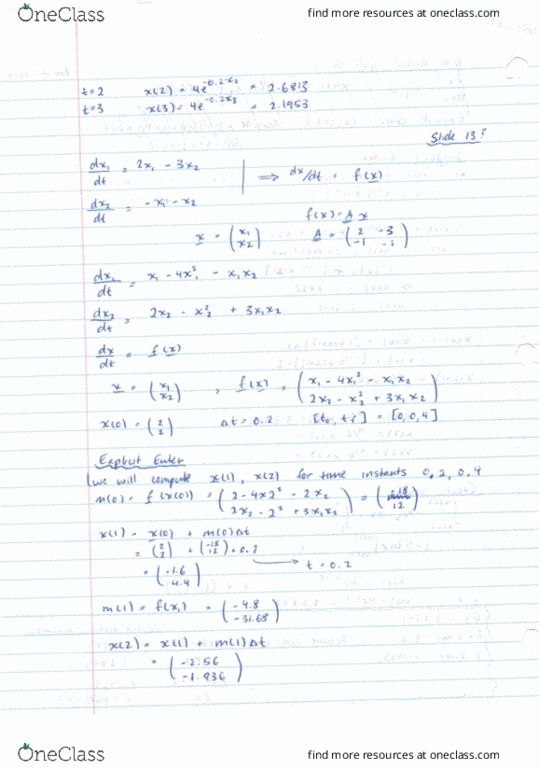 OneClass
find more resources at oneclass.com
t=2 x(2) = 4e^-0.2×2 = 2.6813
t=3 x(3) = 4e^-0.2×3 = 2.1953
Slide 13?
dx₁/dt = 2x₁ - 3x₂ ⟹ dx/dt = f(x)
dx₂/dt = -x₁ - x₂ f(x) = A x
x = (x₁ x₂) A = (2 -3 -1 -1)
dx₁/dt = x₁ - 4x₁² - x₁x₂
dx₂/dt = 2x₂ - x₂² + 3x₁x₂
dx/dt = f(x)
x = (x₁ x₂) , f(x) = (x₁ - 4x₁² - x₁x₂ 2x₂ - x₂² + 3x₁x₂)
x(0) = (2 2) Δt = 0.2 [t₀, tf] = [0, 0.4]
Explicit Euler
we will compute x(1), x(2) for time instants 0.2, 0.4
m(0) = f(x(0)) = (2 - 4×2² - 2×2 2×2 - 2² + 3×2×2) = (-18 12)
x(1) = x(0) + m(0)Δt
= (2 2) + (-18 12) × 0.2
= (-1.6 4.4) → t = 0.2
m(1) = f(x₁) = (-4.8 -31.68)
x(2) = x(1) + m(1)Δt
= (-2.56 -1.936)
OneClass
find more resources at oneclass.com